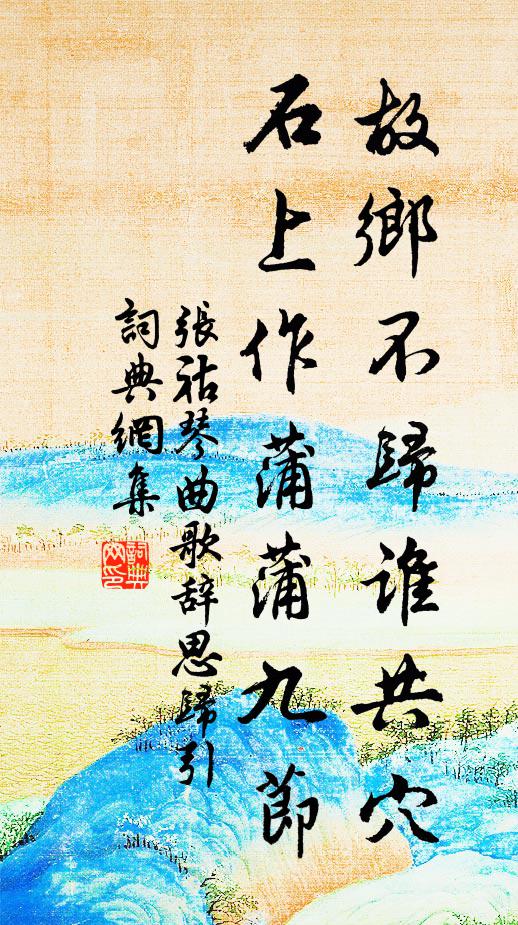 故鄉不歸誰共穴
石上作蒲蒲九節
張祜琴曲歌辞思歸引
詞典網集
詞典網印